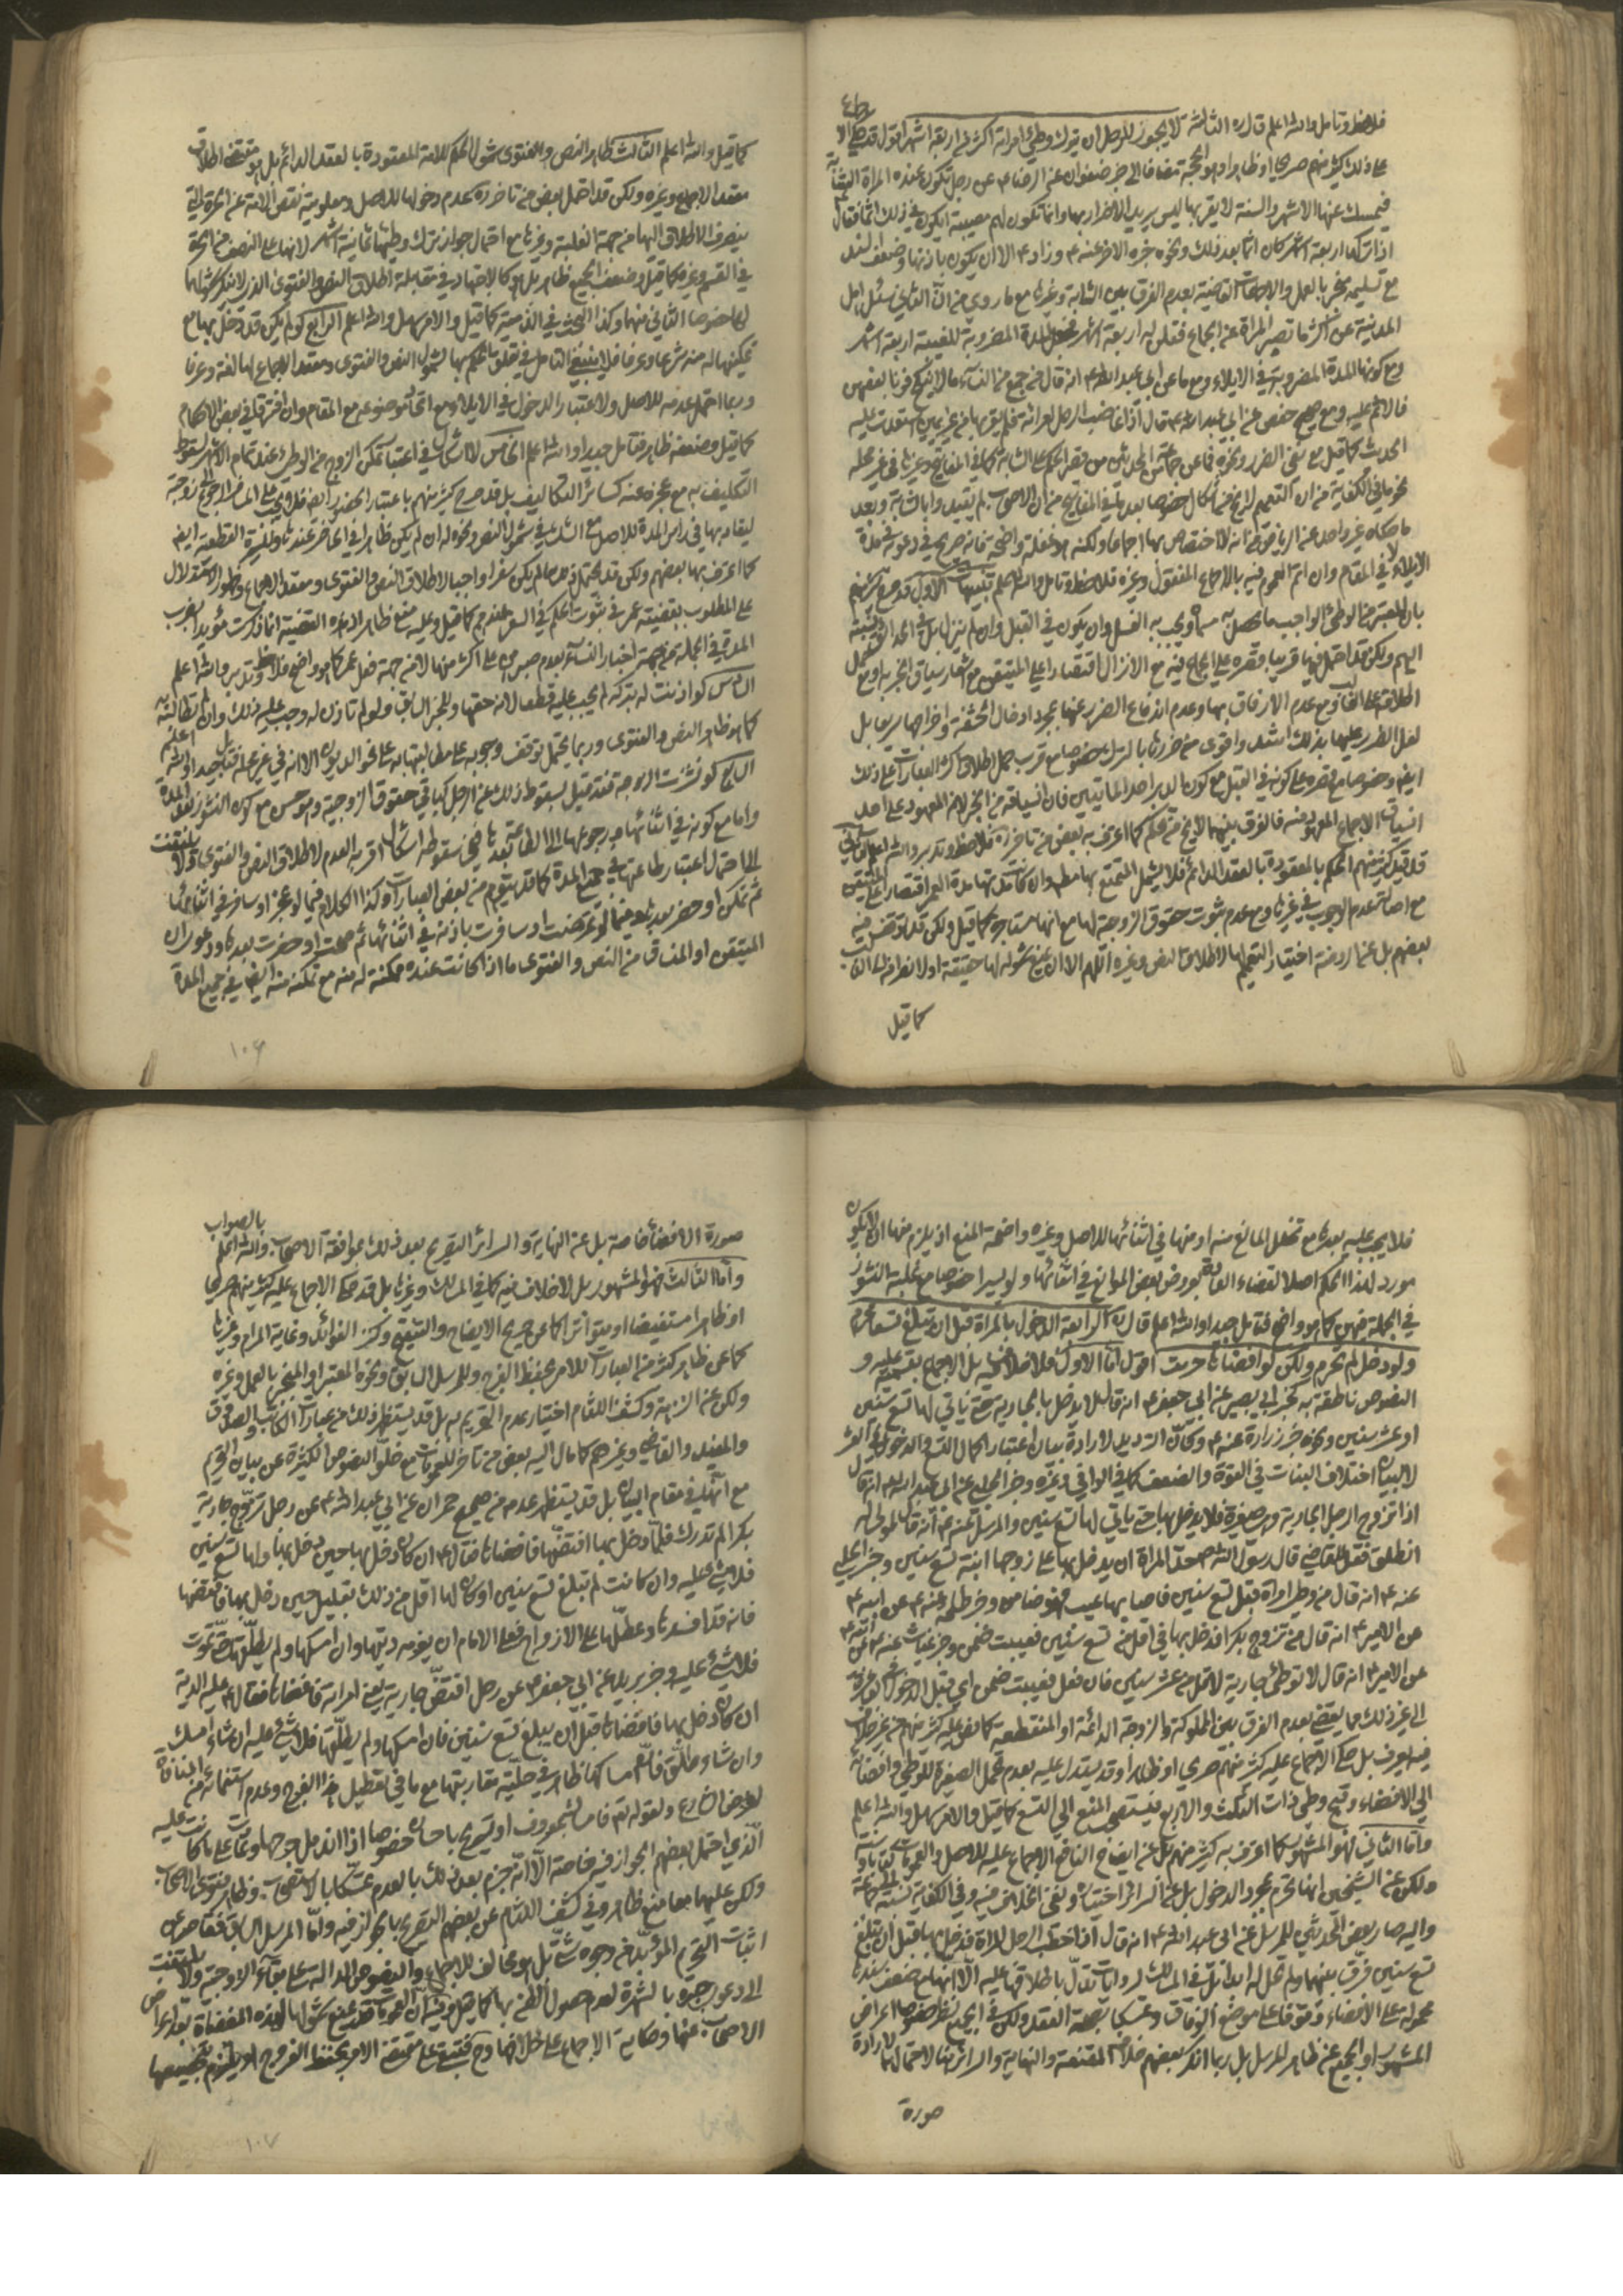 فلاحظ وتامل والله اعلم قال ره الثالثة لا يجوز للرجل ان يترك وطي امراته اكثر من اربعة اشهر اقول قد
على ذلك كثير منهم صريحا او ظاهرا وهو الحجة مضافا الى خبر صفوان عن الرضا ع عن رجل تكون عنده المراة الشابة
فيمسك عنها الاشهر والسنة لا يقربها ليس يريد الاضرار بها وانما تكون لهم مصيبة ايكون في ذلك اثما فقال
اذا تركها اربعة اشهر كان اثما بعد ذلك ونحوه خبره الاخر عنه ع وزاد ع الا ان يكون باذنها وضعف السند
مع تسليمه منجبر بالعمل والاطلاقات القاضية بعدم الفرق بين الشابة وغيرها مع ما روي من ان الثاني سئل اهل
المدينة عن اكثر ما تصبر المراة عن الجماع فقلن له اربعة اشهر فجعل المدة المضروبة للغيبة اربعة اشهر
ومع كونها المدة المضروبة في الايلاء ومع ما عن ابي عبد الله ع انه قال من جمع من النساء ما لا ينكح فزنا بعضهن
فالاثم عليه ومع صحيح حفص عن ابي عبد الله ع قال اذا غاضب الرجل امراته فلم يقربها من غير يمين استعدت عليه
الحديث كما قيل مع نفي الضرر ونحوه فما عن جماعة من المحدثين من قصر الحكم على الشابة كما في المفاتيح وغيرها في غير محله
نحو ما في الكفاية من ان التعميم لا يخ من اشكال خصوصا بعد ما في المفاتيح من ان الاصحاب لم يقيدوا بالشابة وبعد
ما حكاه غير واحد عن الرياض من انه لا اختصاص بها اجماعا ولكنه
الايلاء لا في المقام وان اتم العموم فيه بالاجماع المنقول وغيره فلاحظ وتامل والله اعلم تنبيهات الاول قد صرح كثير منهم
بان المعتبر من الوطي الواجب ما يحصل به مسماه ويجب به الغسل وان يكون في القبل وان لم ينزل بل في الحدائق نسبته
اليهم ولكن قد احتمل فيها قريبا وقصره على الجماع فيه مع الانزال اقتصارا على المتيقن مع اشعار سياق الخبر به او مع
اطلاقه على الغالب ومع عدم الارفاق بها وعدم اندفاع الضرر عنها بمجرد ادخال الحشفة واخراجها سريعا بل
لعل الضرر عليها بذلك اشد واقوى من ضررها بالترك خصوصا مع قرب حمل اطلاق اكثر العبارات على ذلك
ايضا وخصوصا مع قصره على كونه في القبل مع كون الدبر احد الماتيين فان انسياقه من الخبر لانه المعهود على احد
انسياق الاجماع المعهود منه فالفرق بينهما لا يخ من تحكم كما اعترف به بعض من تاخر ره فلاحظ وتدبر والله اعلم الثاني
قد قيد كثير منهم الحكم بالمعقودة بالعقد الدائم فلا يشمل المتمتع بها مط وان كانت مدتها مدة العمر اقتصارا على المتيقن
مع اصالة عدم الوجوب في غيرها ومع عدم ثبوت حقوق الزوجية لها مع انها مستاجرة كما قيل ولكن قد توقف فيه
بعضهم بل عن الروضة اختيار التعميم لها لاطلاق النص وغيره اللهم الا ان يمنع شموله لها حقيقة او لانصرافه الى الغالب
كما قيل
كما قيل والله اعلم الثالث ظاهر النص والفتوى شمول الحكم للامة المعقودة بالعقد الدائم بل هو مقتضى اطلاق
معقد الاجماع وغيره ولكن قد احتمل بعض من تاخر ره عدم دخولها للاصل ومعلومية نقص الامة عن الحرة التي
ينصرف الاطلاق اليها من جهة الغلبة وغيرها مع احتمال جواز ترك وطيها ثمانية اشهر لانها على النصف من الحرة
في القسم وغيره كما قيل وضعف الجميع ظاهر بل هو كالاجتهاد في مقابلة اطلاق النص والفتوى الذي لا ننكر شموله لها
لها خصوصا الثاني منهما وكذا البحث في الذمية كما قيل والامر سهل والله اعلم الرابع لو لم يكن قد دخل بها مع
تمكينها له منه شرعا وعرفا فلا ينبغي التامل في تعلق الحكم بها لشمول النص والفتوى ومعقد الاجماع لها لغة وعرفا
وربما احتمل عدمه للاصل ولاعتبار الدخول في الايلاء ومع اتحاد موضوعه مع المقام وان افترقا في بعض الاحكام
كما قيل وضعفه ظاهر فتامل جيدا والله اعلم الخامس لا اشكال في اعتبار تمكن الزوج من الوطي عند تمام الاشهر لسقوط
التكليف به مع عجزه عنه كسائر التكاليف بل قد صرح كثير منهم باعتبار الحضور ايضا فلا يجب على المسافر الرجوع لزوجته
ليقاربها في راس المدة للاصل مع الشك في شمول النص ونحوه له ان لم يكن ظاهرا في الحاضر عنده وللسيرة القطعية ايضا
كما اعترف بها بعضهم ولكن قد يحتمل ذلك ما لم يكن سفرا واجبا لاطلاق النص والفتوى ومعقد الاجماع وظهور الاستدلال
على المطلوب بقضية عمر في ثبوت الحكم في السفر عندهم كما قيل وعليه منع ظاهر اذ هذه القضية انما ذكرت مؤيدا لضرب
المدة في الجملة من جهة اخبار النساء بعدم صبرهن على اكثر منها لا من جهة فعل عمر كما هو واضح فلاحظ وتدبر والله اعلم
السادس لو اذنت له بتركه لم يجب عليه قطعا لانه حقها وللخبر السابق ولو لم تاذن له وجب عليه ذلك وان لم تطالبه به
كما هو ظاهر النص والفتوى وربما يحتمل توقف وجوبه على مطالبتها به على نحو الديون الا انه في غير محله فتامل جيدا والله اعلم
السابع لو نشزت الزوجة فقد قيل بسقوط ذلك عن الرجل كباقي حقوق الزوجية وهو حسن مع كون النشوز لتمام المدة
واما مع كونه في اثنائها ورجوعها الى الطاعة بعدها ففي سقوطه اشكال اقربه العدم لاطلاق النص والفتوى ولا يلتفت
الى احتمال اعتبار طاعتها في جميع المدة كما قد يتوهم من بعض العبارات وكذا الكلام فيما لو عجز او سافر في اثنائها
ثم تمكن او حضر بعدها وفيما لو تمرضت او سافرت باذنه في اثنائها ثم صحت او حضرت بعدها ودعوى ان
المتيقن او المنساق من النص والفتوى ما اذا كانت عنده ممكنة له منه مع تمكنه منه ايضا في جميع المدة
١٠٦
فلا يجب عليه بعدها مع تخلل المانع منه او منها في اثنائها للاصل وغيره واضحة المنع اذ يلزم منها ان لا يكون
مورد لهذا الحكم اصلا لقضاء العادة بعروض بعض الموانع في اثنائها ولو يسيرا خصوصا مع غلبة النشوز
في الجملة منهن كما هو واضح فتامل جيدا والله اعلم قال ره الرابعة الدخول بالمراة قبل ان تبلغ تسعا محرم
ولو دخل لم تحرم ولكن لو افضاها حرمت اقول اما الاول فلا خلاف فيه بل الاجماع بقسميه عليه و
النصوص ناطقة به كخبر ابي بصير عن ابي جعفر ع انه قال لا يدخل بالجارية حتى ياتي لها تسع سنين
او عشر سنين ونحوه خبر زرارة عنه ع وكان الترديد لارادة بيان اعتبار اكمال التسع والدخول في العشر
لا لبيان اختلاف البنات في القوة والضعف كما في الوافي وغيره وخبر الحلبي عن ابي عبد الله ع انه قال
اذا تزوج الرجل الجارية وهي صغيرة فلا يدخل بها حتى ياتي لها تسع سنين والمرسل عنه ع انه قال لمولى له
انطلق فقل للقاضي قال رسول الله ص حد المراة ان يدخل بها على زوجها ابنة تسع سنين وخبر الحلبي
عنه ع انه قال من وطي امراة قبل تسع سنين فاصابها عيب فهو ضامن وخبر طلحة عنه ع عن ابيه ع
عن الامير ع انه قال من تزوج بكرا فدخل بها في اقل من تسع سنين فعيبت ضمن وخبر غياث عنه ع عن ابيه ع
عن الامير ع انه قال لا توطئ جارية لاقل من عشر سنين فان فعل فعيبت ضمن اي قبل الدخول في العشرة
الى غير ذلك مما يقضي بعدم الفرق بين المملوكة والزوجة الدائمة او المنقطعة كما نص عليه كثير منهم من غير خلاف
فيه يعرف بل حكى الاجماع عليه كثير منهم صريحا او ظاهرا وقد يستدل عليه بعدم تحمل الصغيرة للوطي وافضائه
الى الافضاء وقبح وطي ذات الثلث والاربع فيستصحب المنع الى التسع كما قيل والامر سهل والله اعلم
واما الثاني فهو المشهور كما اعترف به كثير منهم بل عن ايضاح النافع الاجماع عليه للاصل والعمومات كتابا وسنة
ولكن عن الشيخين انها تحرم بمجرد الدخول بل عن السرائر اختياره ونفي الخلاف فيه وفي الكفاية نسبته لجماعة
واليه صار بعض المحدثين للمرسل عن ابي عبد الله ع انه قال اذا خطب الرجل المراة فدخل بها قبل ان تبلغ
تسع سنين فرق بينهما ولم تحل له ابدا بل في المسالك الروايات تدل باطلاقها عليه الا انها مع ضعف سندها
محمولة على الافضاء وقوفا على موضع الوفاق وتمسكا بصحة العقد ولكن في الجميع نظر خصوصا مع اعراض
المشهور او الجميع عن ظاهر المرسل بل ربما انكر بعضهم خلاف المقنعة والنهاية والسرائر هنا لاحتمالها لارادة
صورة
صورة الافضاء خاصة بل عن النهاية والسرائر التصريح بعد ذلك بموافقة الاصحاب والله اعلم بالصواب
واما الثالث فهو المشهور بل لا خلاف فيه كما في المسالك وغيرها بل قد حكى الاجماع عليه كثير منهم صريحا
او ظاهرا مستفيضا او متواترا كما عن صريح الايضاح والتنقيح وكنز الفوائد وغاية المرام وغيرها
كما عن ظاهر كثير من العبارات للامر بحفظ الفرج وللمرسل السابق ونحوه المعتبر او المنجبر بالعمل وغيره
ولكن عن النزهة وكشف اللثام اختيار عدم التحريم به بل قد يستظهر ذلك من عبارات الكاتب والصدوق
والمفيد والقاضي وغيرهم كما مال اليه بعض من تاخر للعمومات مع خلو النصوص الكثيرة عن بيان التحريم
مع انها في مقام البيان بل قد يستظهر عدمه من صحيح حمران عن ابي عبد الله ع عن رجل تزوج جارية
بكرا لم تدرك فلما دخل بها اقتضها فافضاها فقال ع ان كان دخل بها حين دخل بها ولها تسع سنين
فلا شيء عليه وان كانت لم تبلغ تسع سنين او كان لها اقل من ذلك بقليل حين دخل بها فاقتضها
فانه قد افسدها وعطلها على الازواج فعلى الامام ان يغرمه ديتها وان امسكها ولم يطلقها حتى تموت
فلا شيء عليه وخبر بريد عن ابي جعفر ع عن رجل اقتض جارية يعني امراته فافضاها فقال ع عليه الدية
ان كان دخل بها فافضاها قبل ان يبلغ تسع سنين فان امسكها ولم يطلقها فلا شيء عليه ان شاء امسك
وان شاء طلق فان امساكها ظاهر في حلية مقاربتها مع ما في تعطيل هذا الفرج وعدم استغنائه من المنافاة
لغرض الشارع ولقوله تع فامساك بمعروف او تسريح باحسان خصوصا اذا اندمل جرحها وعادت على ما كانت عليه
الذي احتمل بعضهم الجواز فيه خاصة الا انه جزم بعد ذلك بالعدم تمسكا بالاستصحاب وظاهر فتوى الاصحاب
ولكن عليهما معا منع ظاهر وفي كشف اللثام عن بعضهم التصريح بالجواز فيه واما المرسل السابق فقاصر عن
اثبات التحريم المؤبد من وجوه شتى بل هو مخالف للاجماع والنصوص الدالة على بقاء الزوجية ولا يلتفت
الى دعوى جبره بالشهرة لعدم حصول الظن بها كما قيل وفيه ان العمومات قد يمنع شمولها لهذه المفضاة بعد اعراض
الاصحاب عنها وحكاية الاجماع على خلافها وح فتبقى على مقتضى الامر بحفظ الفروج او يلتزم تخصيصها
١٠٧